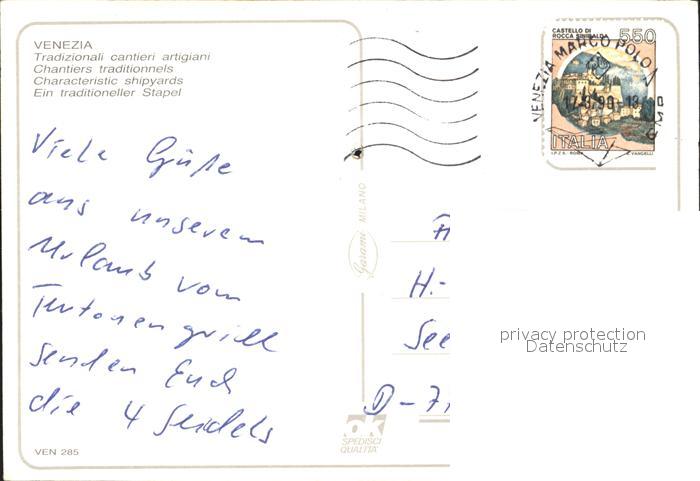 VENEZIA
Tradizionali cantieri artigiani
Chantiers traditionnels
Characteristic shipyards
Ein traditioneller Stapel
CASTELLO DI
ROCCA SINIBALDA 550
VENEZIA MARCO POLO
ITALIA
I.P.Z.S. ROMA E. VANGELLI
Viele Grüße
aus unserem
Urlaub vom
Teutonengrill
senden Euch
die 4 Seidels
VEN 285
Garami MILANO
H.-
See
D-71
ok
SPEDISCI
QUALITA'
privacy protection
Datenschutz